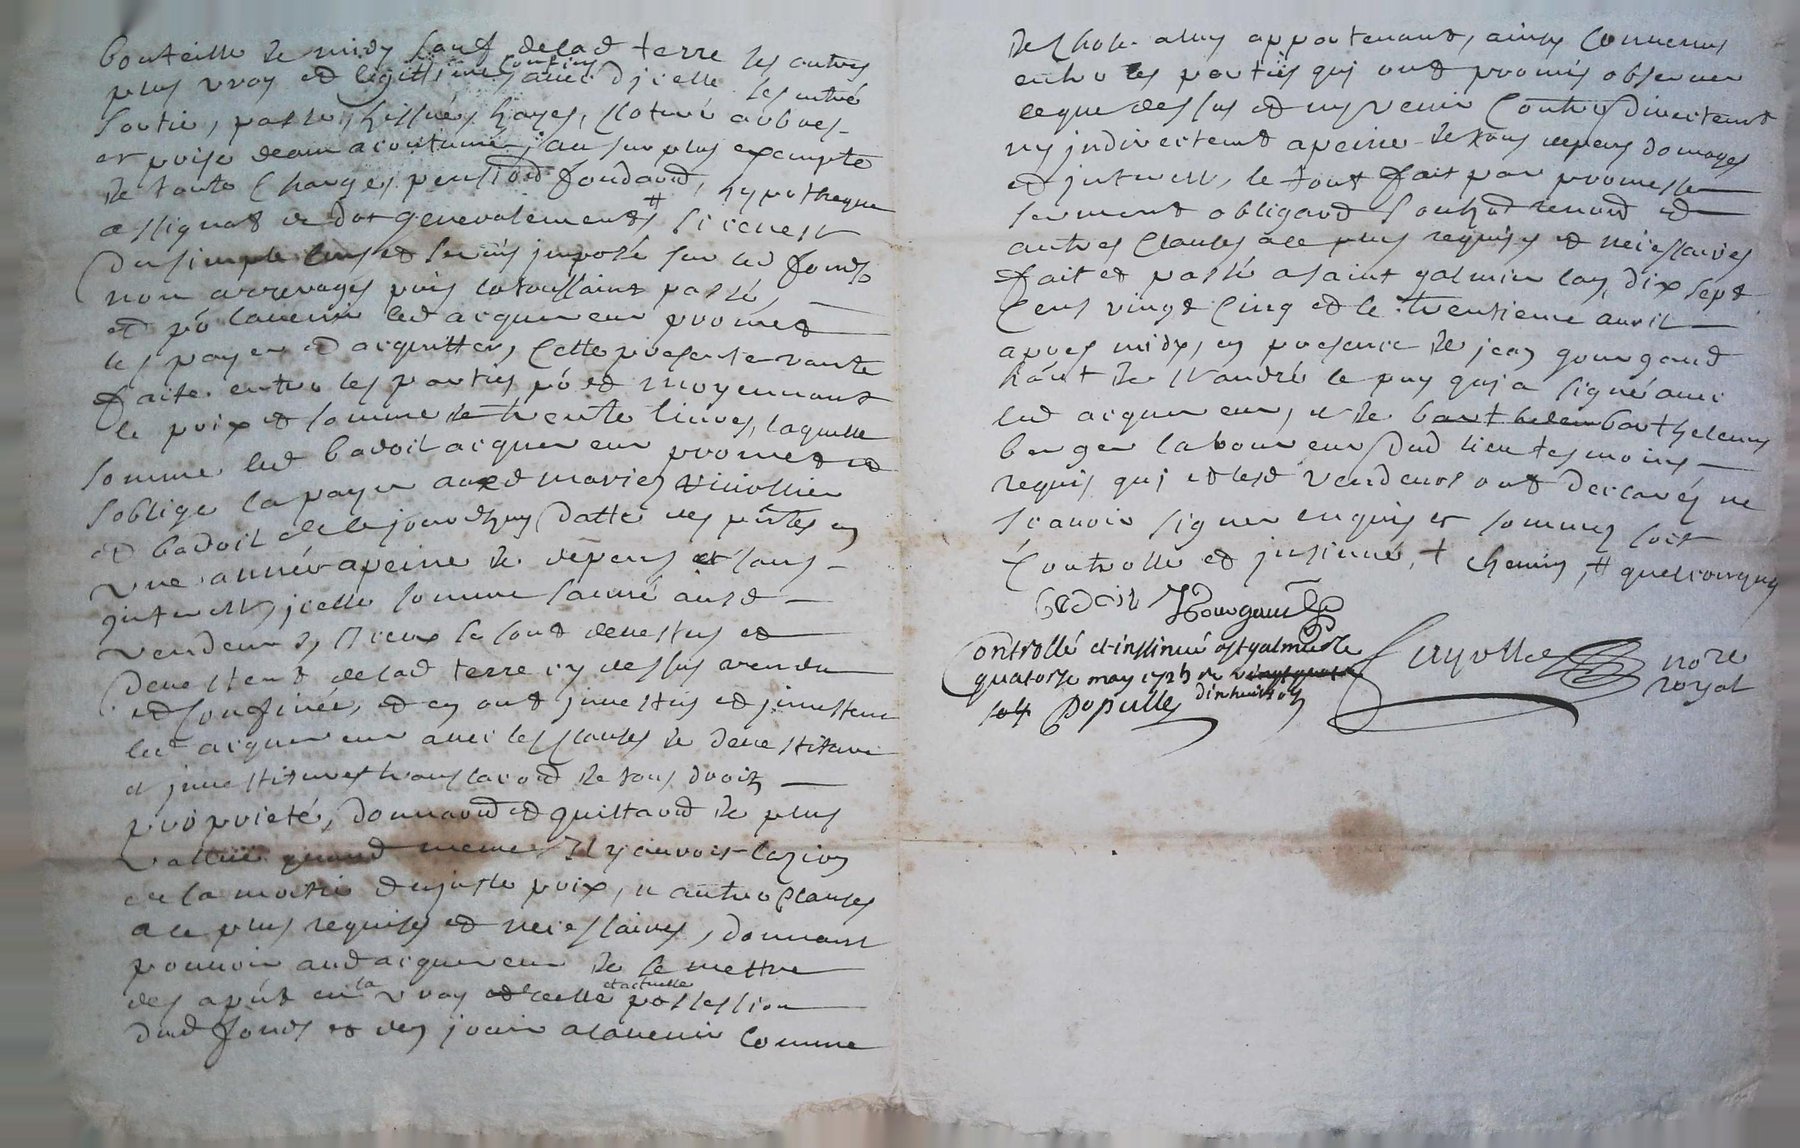 bouteille de midy sauf de lad terre les autres
plus vray et legittime confins avec d'icelle ses entré
sortie, passé, hissues hayes, cloture arbres
et prise deau acoutumé, jau surplus exempte
de toute charges pention fondaon, hypotheque
assignat et dot generalement # si ce nest
du simple cens et servis imposé sur led fonds
non arrerages puis la toussaint passé,
et pr lavenir led acquereur promet
les payer et acquitter, cette presente vante
faite entre les parties pr et moyennant
le prix et somme de trente livres, laquelle
somme led badoil acquereur promet et
soblige la payer auxd mariez
et badoil de ce jourdhuy datte des pntes en
une année apeine de depens et sans
interests icelle somme sauvé ausd
vendeurs, iceux se sont devestus et
devestent de lad terre cy dessus vendu
et confinée, et en ont jnvestus et jnvestent
led acquereur avec les clauses de devestiture
et jnvestitures translaond de tous droitz
proprieté, donnaond et quittaond de plus
vallue quand meme il y auroit lezion
de la moitié du juste prix, et autre clauses
a ce plus requises et necessaires, donnant
pouvoir aud acquereur de se mettre
des apnt en la vray et actuelle possession
dud fonds et den jouir alavenir comme
de chose aluy appartenant, ainsy convenus
entre les parties qui ont promis observer
ce que dessus et ny venir contre directemt
ny jndirectemt apeine de tous depens domages
et jnterests, le tout fait par promesse
serment obligaond souhzd renond et
autres clauses a ce plus requises et necessaires
fait et passé a saint galmier lan dix sept
cens vingt cinq et le trentieme avril
apres midy, en presence de jean gourgaud
hant de st andré le puy qui a signé avec
led acquereur, et de barthelemy
berger laboureur dud lieu tesmoins
requis qui et lesd vendeurs ont declarés ne
scavoir signer enquis et sommez soit
controlle et jnsinué, + chemins, # quelconques
badoil Gourgaud
Controllé et insinué a st galmier le
quatorse may 1725 Re
dixhuit s
sol Populle
nore
royal